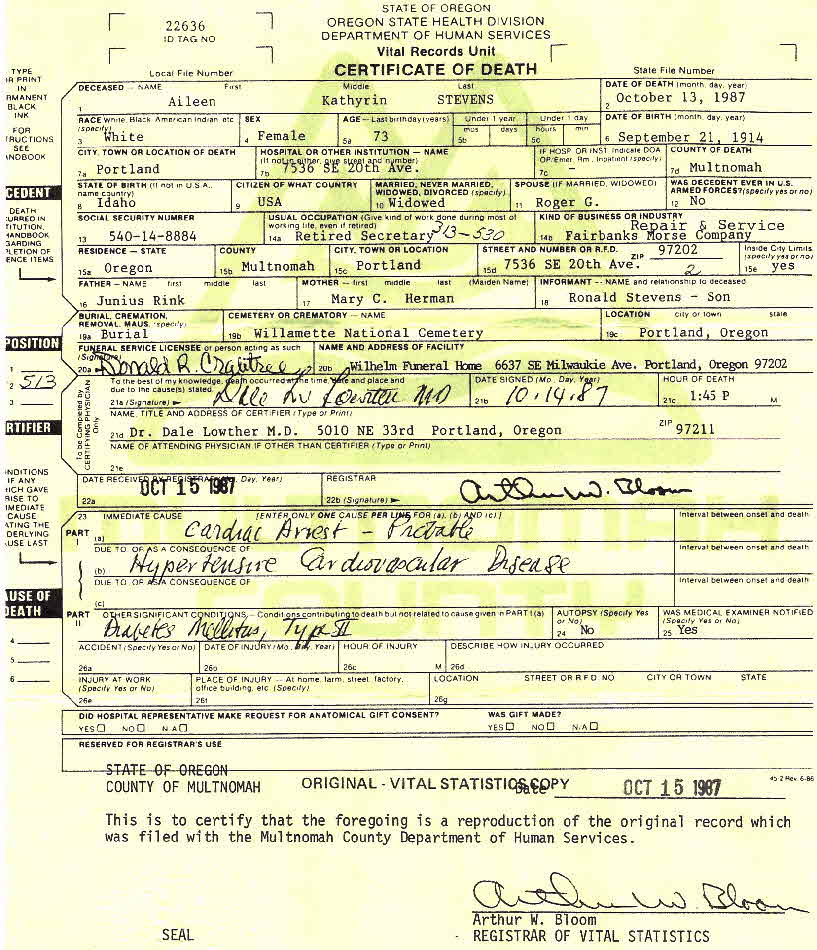 STATE OF OREGON
OREGON STATE HEALTH DIVISION
DEPARTMENT OF HUMAN SERVICES
Vital Records Unit
CERTIFICATE OF DEATH
22636
ID TAG NO
Local File Number
State File Number
TYPE
OR PRINT
IN
PERMANENT
BLACK
INK
FOR
SEE
DECEASED — NAME First Middle Last
1 Aileen Kathyrin STEVENS
DATE OF DEATH (month, day, year)
2 October 13, 1987
RACE White, Black, American Indian, etc (specify)
3 White
SEX
4 Female
AGE — Last birthday (years)
5a 73
Under 1 year
mos days
5b
Under 1 day
hours min
5c
DATE OF BIRTH (month, day, year)
6 September 21, 1914
CITY, TOWN OR LOCATION OF DEATH
7a Portland
HOSPITAL OR OTHER INSTITUTION — NAME
(If not in either, give street and number)
7b 7536 SE 20th Ave.
IF HOSP OR INST Indicate DOA
OP/Emer. Rm., Inpatient (specify)
7c -
COUNTY OF DEATH
7d Multnomah
STATE OF BIRTH (If not in U.S.A., name country)
8 Idaho
CITIZEN OF WHAT COUNTRY
9 USA
MARRIED, NEVER MARRIED,
WIDOWED, DIVORCED (specify)
10 Widowed
SPOUSE (IF MARRIED, WIDOWED)
11 Roger G.
WAS DECEDENT EVER IN U.S.
ARMED FORCES? (specify yes or no)
12 No
SOCIAL SECURITY NUMBER
13 540-14-8884
USUAL OCCUPATION (Give kind of work done during most of
working life, even if retired)
14a Retired Secretary 313-530
KIND OF BUSINESS OR INDUSTRY
Repair & Service
14b Fairbanks Morse Company
RESIDENCE — STATE
15a Oregon
COUNTY
15b Multnomah
CITY, TOWN OR LOCATION
15c Portland
STREET AND NUMBER OR R.F.D. ZIP 97202
15d 7536 SE 20th Ave. 2
Inside City Limits
(specify yes or no)
15e yes
FATHER — NAME first middle last
16 Junius Rink
MOTHER — first middle last (Maiden Name)
17 Mary C. Herman
INFORMANT — NAME and relationship to deceased
18 Ronald Stevens - Son
BURIAL, CREMATION,
REMOVAL, MAUS. (specify)
19a Burial
CEMETERY OR CREMATORY — NAME
19b Willamette National Cemetery
LOCATION city or town state
19c Portland, Oregon
FUNERAL SERVICE LICENSEE or person acting as such
(Signature)
20a Donald R. Crabtree
NAME AND ADDRESS OF FACILITY
20b Wilhelm Funeral Home 6637 SE Milwaukie Ave. Portland, Oregon 97202
1
2 513
3
To be Completed by
CERTIFYING PHYSICIAN
Only
To the best of my knowledge, death occurred at the time, date and place and
due to the cause(s) stated.
21a (Signature) Dale W Lowther MD
DATE SIGNED (Mo., Day, Year)
21b 10.14.87
HOUR OF DEATH
21c 1:45 P M
NAME, TITLE AND ADDRESS OF CERTIFIER (Type or Print)
21d Dr. Dale Lowther M.D. 5010 NE 33rd Portland, Oregon ZIP 97211
NAME OF ATTENDING PHYSICIAN IF OTHER THAN CERTIFIER (Type or Print)
21e
DATE RECEIVED BY REGISTRAR (Mo., Day, Year)
22a OCT 15 1987
REGISTRAR
22b (Signature) Arthur W. Bloom
23 IMMEDIATE CAUSE [ENTER ONLY ONE CAUSE PER LINE FOR (a), (b) AND (c)]
PART I (a) Cardiac Arrest - Probable
Interval between onset and death
DUE TO, OR AS A CONSEQUENCE OF
(b) Hypertensive Cardiovascular Disease
Interval between onset and death
DUE TO, OR AS A CONSEQUENCE OF
(c)
Interval between onset and death
CAUSE OF
DEATH
PART II OTHER SIGNIFICANT CONDITIONS — Conditions contributing to death but not related to cause given in PART I (a)
Diabetes Mellitus, Type II
AUTOPSY (Specify Yes or No)
24 No
WAS MEDICAL EXAMINER NOTIFIED
(Specify Yes or No)
25 Yes
4
5
6
ACCIDENT (Specify Yes or No)
26a
DATE OF INJURY (Mo., Day, Year)
26b
HOUR OF INJURY
26c M
DESCRIBE HOW INJURY OCCURRED
26d
INJURY AT WORK
(Specify Yes or No)
26e
PLACE OF INJURY — At home, farm, street, factory,
office building, etc. (Specify)
26f
LOCATION STREET OR R.F.D. NO. CITY OR TOWN STATE
26g
DID HOSPITAL REPRESENTATIVE MAKE REQUEST FOR ANATOMICAL GIFT CONSENT?
YES NO N/A
WAS GIFT MADE?
YES NO N/A
RESERVED FOR REGISTRAR'S USE
STATE OF OREGON
COUNTY OF MULTNOMAH
ORIGINAL - VITAL STATISTICS COPY
Date OCT 15 1987
45-2 Rev. 6-86
This is to certify that the foregoing is a reproduction of the original record which
was filed with the Multnomah County Department of Human Services.
Arthur W. Bloom
Arthur W. Bloom
SEAL
- REGISTRAR OF VITAL STATISTICS